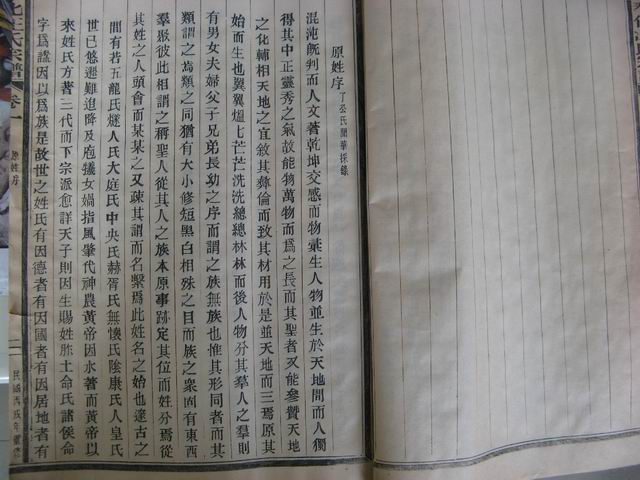 原姓序 了公氏開華採錄
混沌旣判而人文著乾坤交感而物彙生人物並生於天地間而人獨
得其中正靈秀之氣故能物萬物而爲之長而其聖者又能參贊天地
之化輔相天地之宜敘其彜倫而致其材用於是並天地而三焉原其
始而生也翼翼熅七芒芒洗洗總總林林而後人物分其羣人之羣則
有男女夫婦父子兄弟長幼之序而謂之族無族也惟其形同者而其
類謂之爲類之同猶有大小修短黑白相殊之目而族之衆固有東西
羣聚彼此相謂之稱聖人從其人之族本原事跡定其位而姓分焉從
其姓之人頭會而某某之又疎其謂而名繫爲此姓名之始也邃古之
間有若五龍氏燧人氏大庭氏中央氏赫胥氏無懷氏陰康氏人皇氏
世已悠邈難追降及庖犧女媧指風肇代神農黃帝因水著而黃帝以
來姓氏方著三代而下宗派愈詳天子則因生賜姓胙土命氏諸侯命
字爲諡因以爲族是故世之姓氏有因德者有因國者有因居地者有
氏宗譜 卷一
原姓序
一
民國丙戌年重修